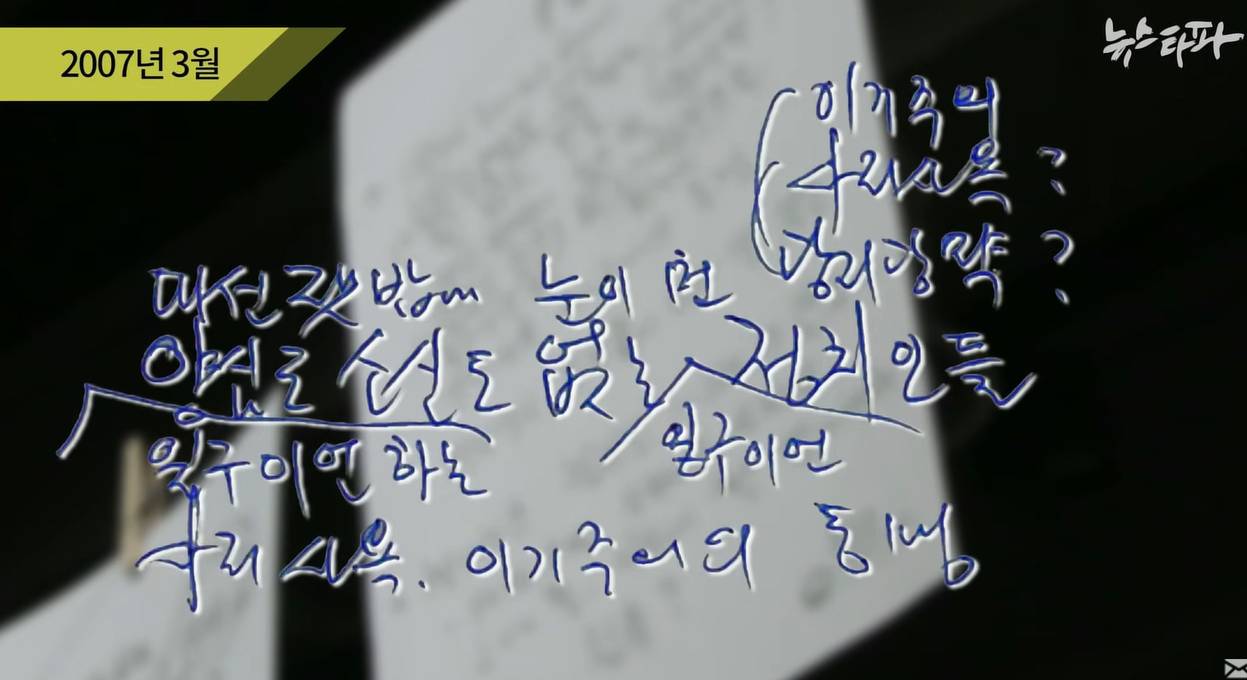 2007년 3월
뉴스타파
이기주의
사리사욕 ?
당리당략 ?
대선 잿밥에 눈이 먼
이념도 소신도 없는 정치인들
일구이언 하는 일구이언
사리사욕. 이기주의의